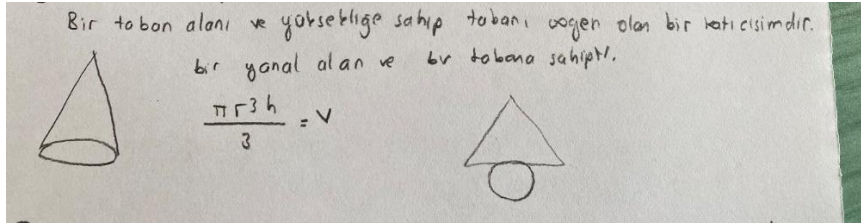 Bir taban alanı ve yüksekliğe sahip tabanı olan bir katı cisimdir.
bir yanal alan ve bir tabana sahiptir.
πr³h / 3 = V